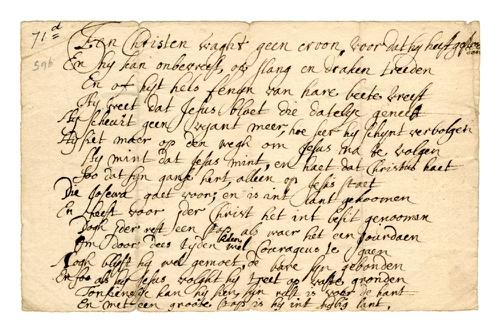 71d Een Christen waght geen croon, voor dat hy heeft
59b En hy kan onbevreest, op slang en draken treeden
En of hyt hels fenyn van hare beete vreest
Hy weet dat Jesus bloet die datelyk geneest
Hy scheuwt geen vyant meer, hoe seer hy schynt verbolgen
Hy siet maer op den wegh om Jesus na te volgen
Hy mint dat Jesus mint, en haet dat Christus haet
Soo dat syn hart, alleen op Jesus staet
Die Josewa gaet voor, en is int lant gekoomen
En heeft voor yder Christ het int besit genoomen
Dogh yder rest een stap, als waer het een Jourdaen
Om door dees wel te gaen
Dogh blyft hy wel gemoet, de bare syn gebonden
En soo als hy Jesus volght hy treet op vaste gronden
kan hy sien syn rust is voor de hant
En met een groote stap is hy int hylig lant,